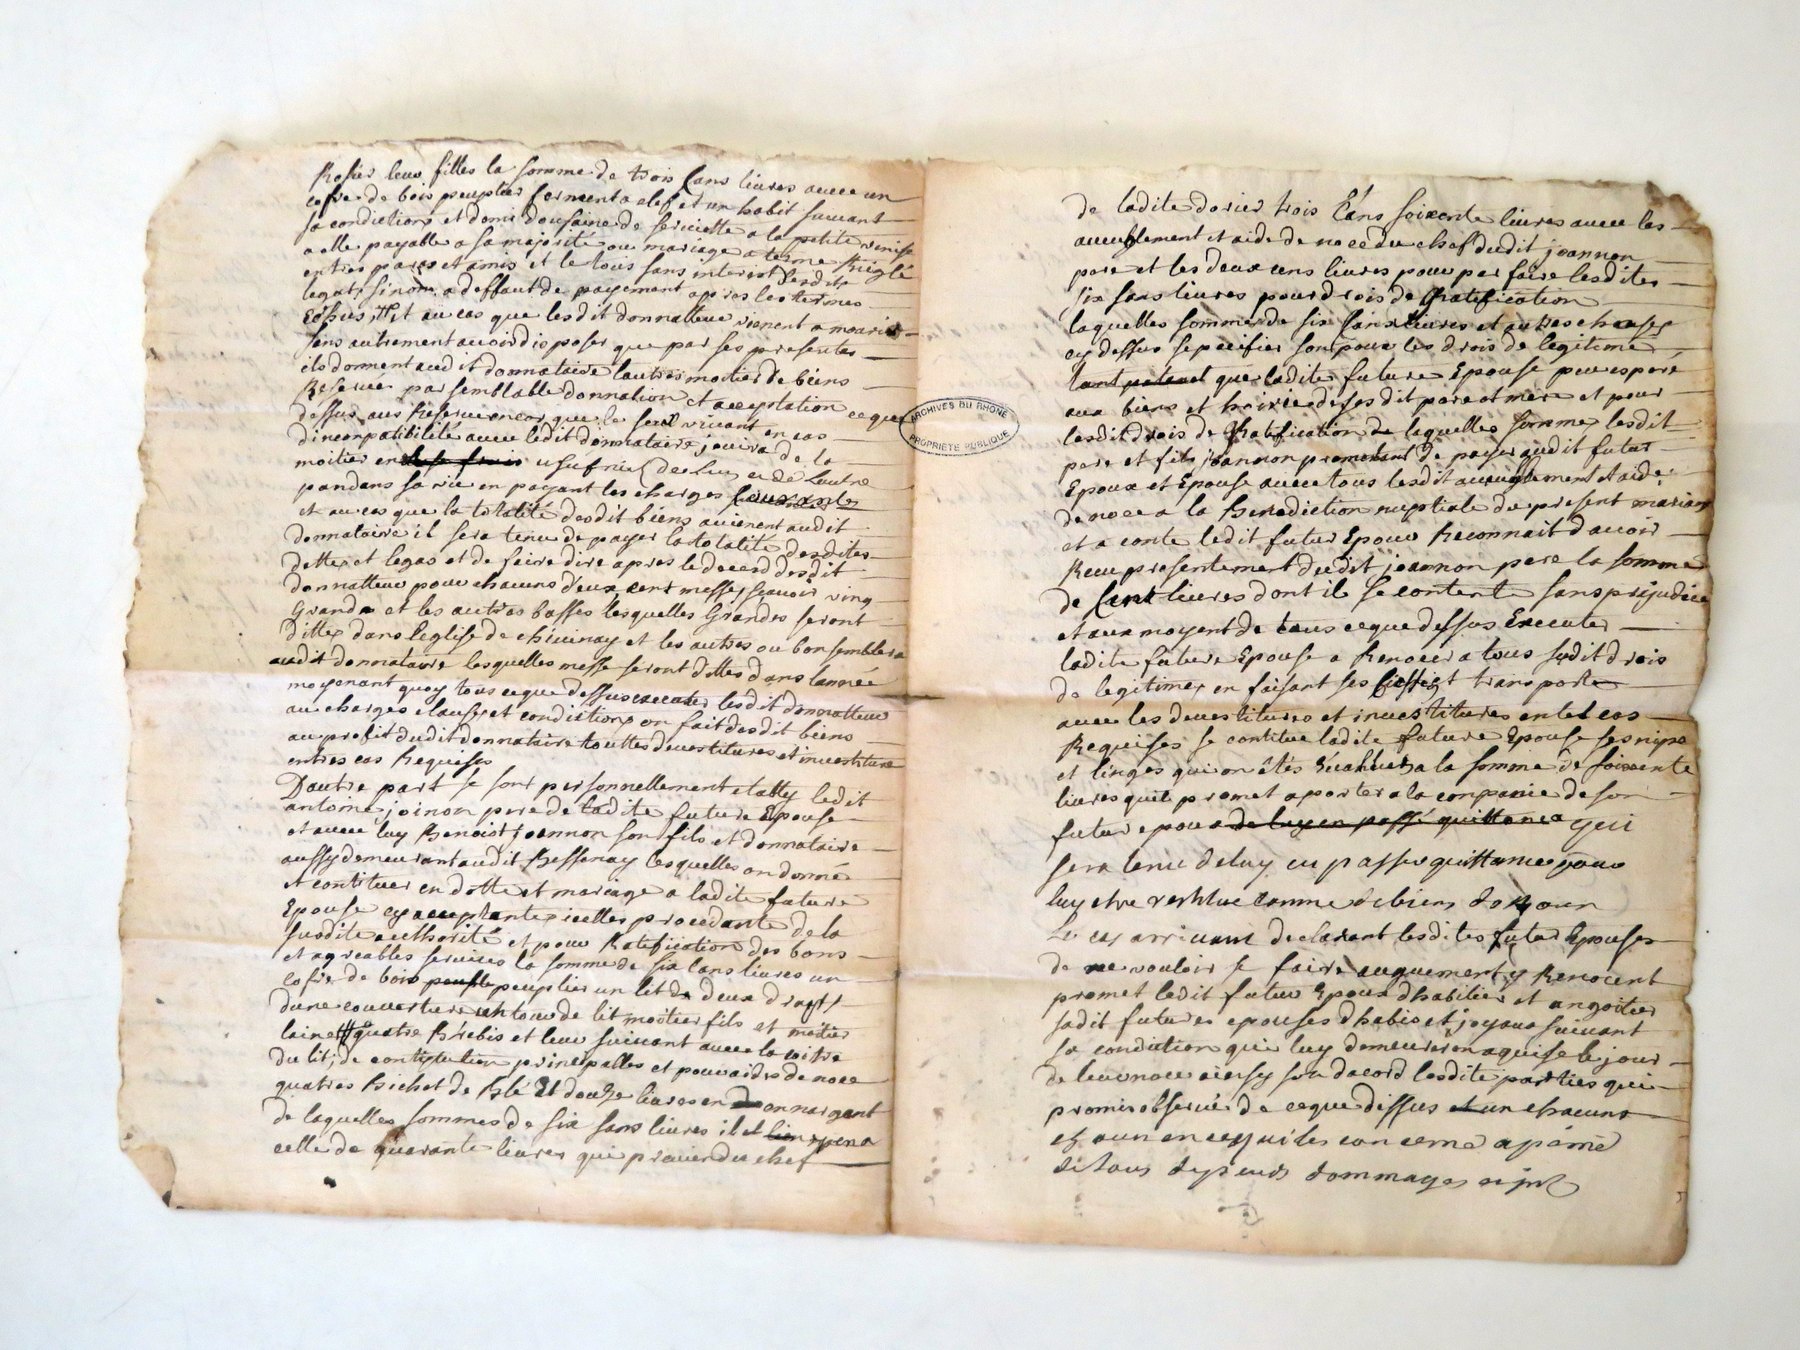 Rosier leur filles la somme de trois Cans livres avec un
cofre de bois peuplier ferment a clef et un habit suivant
sa condictions et demi dousaine de serviette a la petite venise
a elle payable a sa majorité ou mariage a terme Reiglé
entres pares et amis et le tous sans interest desdit
legats sinom a deffaut de payement apres les termes
Echus, Et au cas que lesdit donnatteur vienent a mourir
sans autrement avoir disposer que par ses presentes
ils donment audit donnataire lautres moitier de biens
Reservé par semblable donnation et acceptation ce que
dessus aus Reserve encor que le serd vivant en cas
dincompatibilité avec ledit donnataire jouira de la
moitier en usufruit de lun et de lautre
pandans sa vie en payant les charges
et au cas que la totalité desdit biens avienent audit
donnataire il sera tenu de payer la totalité desdites
dettes et legas et de faire dire apres le deced desdit
donnatteur pour chacuns d'eux cent messes sçavoir ving
Grande et les autres basses lesquelles Grandes seront
dittes dans leglise de chivinay et les autres ou bon semblera
audit donnataire lesquelles messe seront dittes dans lannée
moyenant quoy tous ceque dessus executer lesdit donnatteur
au charges clauses et condictions on fait desdit biens
au profit dudit donnataire touttes devestitures et investiture
entres cas Requises
Dautre part se sont personnellement etably ledit
antoine joinon pere de ladite future Epouse
et avec luy Benoist joannon son fils et donnataire
aussy demeurant audit Bessenay lesquelles on donné
et contituer en dotte et mariage a ladite future
Epouse cy acceptante icelles procedante de la
susdite authorité et pour Ratification des bons
et agreables services la somme de six Cans livres un
cofre de bois peuplier un lit de deux draps
dune couverture un tour de lit moitier fils et moitier
laine quatre Brebis et leur suivant avec la coitre
du lit, de contitution prinepalles et pour aides de noce
quatres Bichet de Blé Et douze livres en argent
de laquelles sommes de six sans livres il et
celle de quarante livres qui proviende chef
de ladite dosier trois Cans soixente livres avec les
aveuplement et aide de noce du chef dudit joannon
pere et les deux cens livres pour par faire lesdites
six sans livres pour drois de Ratification
laquelles sommes de six sans livres et autres choses
cy dessus sepecifier son pour les drois de legitime
que ladite future Epouse peu esperé
aux biens et hoirie de ses dit pere et mere et pour
lesdit drois de Ratification de laquelles sommes lesdit
pere et fils joannon prometant de payer audit futur
Epoux et Epouse avec tous lesdit aveuplement et aide
de noce a la Benediction nuptiale du present mariage
et a conte ledit futur Epoux Reconnait davoir
Receu presentement dudit joannon pere la somme
de Cent livres dont il se contente sans prijudice
et aux moyent de tous ceque dessus Executer
ladite future Epouse a Renocer a tous sudit drois
de legitimes en faisant ses cession et transport
avec les devestitures et investitures en tel cas
Requises se contitue ladite future Epouse ses nipe
et linges qui on étés Evalués a la somme de soixente
livres quil promet aporter a la conpanie de son
futur epoux de luy en passé quittance qui
sera tenu de luy en passer quittance pour
luy etre restitue comme de biens dotaux
Le cas arrivant declarant lesdites futur Epouses
de ne vouloir se faire auguement y Renocent
promet ledit futur Epoux dhabilier et angoitier
sadit futures epouses dhabis et joyaux suivant
sa condiction qui luy demeureron aquise le jour
de leur noce ainsy son dacord lesdite parties qui
promis observé de ceque dessus et un chacuns
et aun en cequi les concerne a peine
de tous depends dommages
ARCHIVES DU RHONE
PROPRIETE PUBLIQUE